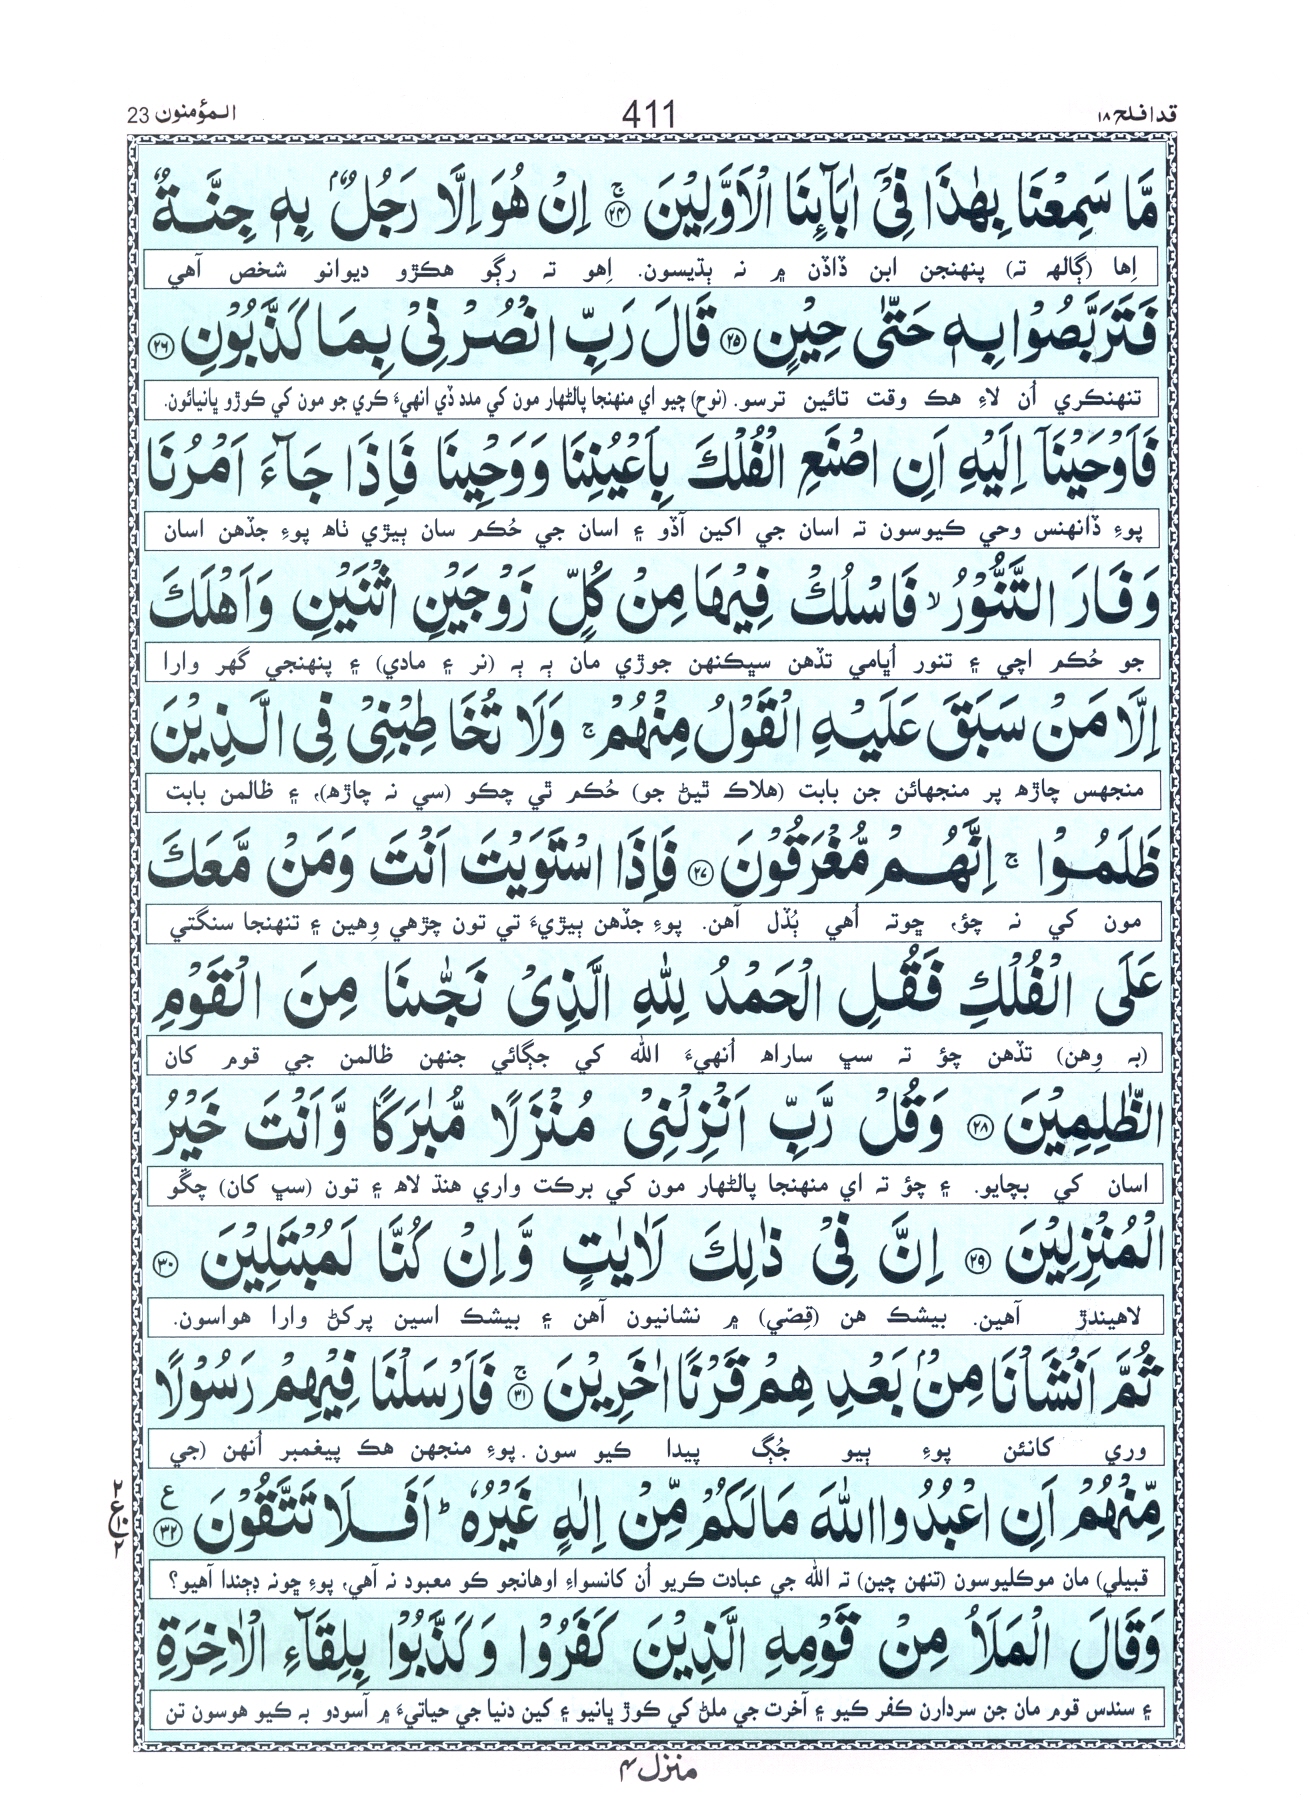 قد افلح ١٨ 411 المؤمنون 23
مَّا سَمِعْنَا بِهٰذَا فِیْۤ اٰبَآئِنَا الْاَوَّلِیْنَ ۚ﴿۲۴﴾ اِنْ هُوَ اِلَّا رَجُلٌۢ بِهٖ جِنَّةٌ
اِها (ڳالهه ته) پنهنجن ابن ڏاڏن ۾ نه ٻڌيسون. اِهو ته رڳو هڪڙو ديوانو شخص آهي
فَتَرَبَّصُوْا بِهٖ حَتّٰی حِیْنٍ ﴿۲۵﴾ قَالَ رَبِّ انْصُرْنِیْ بِمَا كَذَّبُوْنِ ﴿۲۶﴾
تنهنڪري اُن لاءِ هڪ وقت تائين ترسو. (نوح) چيو اي منهنجا پالڻهار مون کي مدد ڏي انهيءَ ڪري جو مون کي ڪوڙو ڀانيائون.
فَاَوْحَیْنَاۤ اِلَیْهِ اَنِ اصْنَعِ الْفُلْكَ بِاَعْیُنِنَا وَوَحْیِنَا فَاِذَا جَآءَ اَمْرُنَا
پوءِ ڏانهنس وحي ڪيوسون ته اسان جي اکين آڏو ۽ اسان جي حُڪم سان ٻيڙي ٺاهه پوءِ جڏهن اسان
وَفَارَ التَّنُّوْرُ ۙ فَاسْلُكْ فِیْهَا مِنْ كُلٍّ زَوْجَیْنِ اثْنَیْنِ وَاَهْلَكَ
جو حُڪم اچي ۽ تنور اُڀامي تڏهن سڀڪنهن جوڙي مان ٻه ٻه (نر ۽ مادي) ۽ پنهنجي گهر وارا
اِلَّا مَنْ سَبَقَ عَلَیْهِ الْقَوْلُ مِنْهُمْ ۚ وَلَا تُخَاطِبْنِیْ فِی الَّذِیْنَ
منجهس چاڙهه پر منجهائن جن بابت (هلاڪ ٿيڻ جو) حُڪم ٿي چڪو (سي نه چاڙهه)، ۽ ظالمن بابت
ظَلَمُوْا ۚ اِنَّهُمْ مُّغْرَقُوْنَ ﴿۲۷﴾ فَاِذَا اسْتَوَیْتَ اَنْتَ وَمَنْ مَّعَكَ
مون کي نه چؤ، ڇوته اُهي ٻُڏل آهن. پوءِ جڏهن ٻيڙيءَ تي تون چڙهي وِهين ۽ تنهنجا سنگتي
عَلَی الْفُلْكِ فَقُلِ الْحَمْدُ لِلّٰهِ الَّذِیْ نَجّٰىنَا مِنَ الْقَوْمِ
(به وِهن) تڏهن چؤ ته سڀ ساراهه اُنهيءَ الله کي جڳائي جنهن ظالمن جي قوم کان
الظّٰلِمِیْنَ ﴿۲۸﴾ وَقُلْ رَّبِّ اَنْزِلْنِیْ مُنْزَلًا مُّبٰرَكًا وَّاَنْتَ خَیْرُ
اسان کي بچايو. ۽ چؤ ته اي منهنجا پالڻهار مون کي برڪت واري هنڌ لاهه ۽ تون (سڀ کان) چڱو
الْمُنْزِلِیْنَ ﴿۲۹﴾ اِنَّ فِیْ ذٰلِكَ لَاٰیٰتٍ وَّاِنْ كُنَّا لَمُبْتَلِیْنَ ﴿۳۰﴾
لاهيندڙ آهين. بيشڪ هن (قِصّي) ۾ نشانيون آهن ۽ بيشڪ اسين پرکڻ وارا هواسون.
ثُمَّ اَنْشَاْنَا مِنْۢ بَعْدِهِمْ قَرْنًا اٰخَرِیْنَ ۚ﴿۳۱﴾ فَاَرْسَلْنَا فِیْهِمْ رَسُوْلًا
وري کانئن پوءِ ٻيو جُڳ پيدا ڪيو سون. پوءِ منجهن هڪ پيغمبر اُنهن (جي
مِّنْهُمْ اَنِ اعْبُدُوا اللّٰهَ مَا لَكُمْ مِّنْ اِلٰهٍ غَیْرُهٗ ؕ اَفَلَا تَتَّقُوْنَ ﴿۳۲﴾ ع
قبيلي) مان موڪليوسون (تنهن چين) ته الله جي عبادت ڪريو اُن کانسواءِ اوهانجو ڪو معبود نه آهي، پوءِ ڇونه ڊڄندا آهيو؟
وَقَالَ الْمَلَاُ مِنْ قَوْمِهِ الَّذِیْنَ كَفَرُوْا وَكَذَّبُوْا بِلِقَآءِ الْاٰخِرَةِ
۽ سندس قوم مان جن سردارن ڪفر ڪيو ۽ آخرت جي ملڻ کي ڪوڙ ڀانيو ۽ کين دنيا جي حياتيءَ ۾ آسودو به ڪيو هوسون تن
منزل ۴